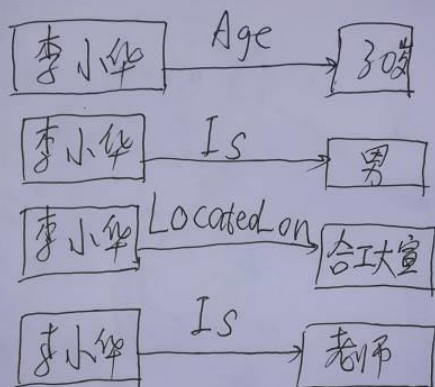 李小华 Age 30岁
李小华 Is 男
李小华 Located on 合工大宣
李小华 Is 老师